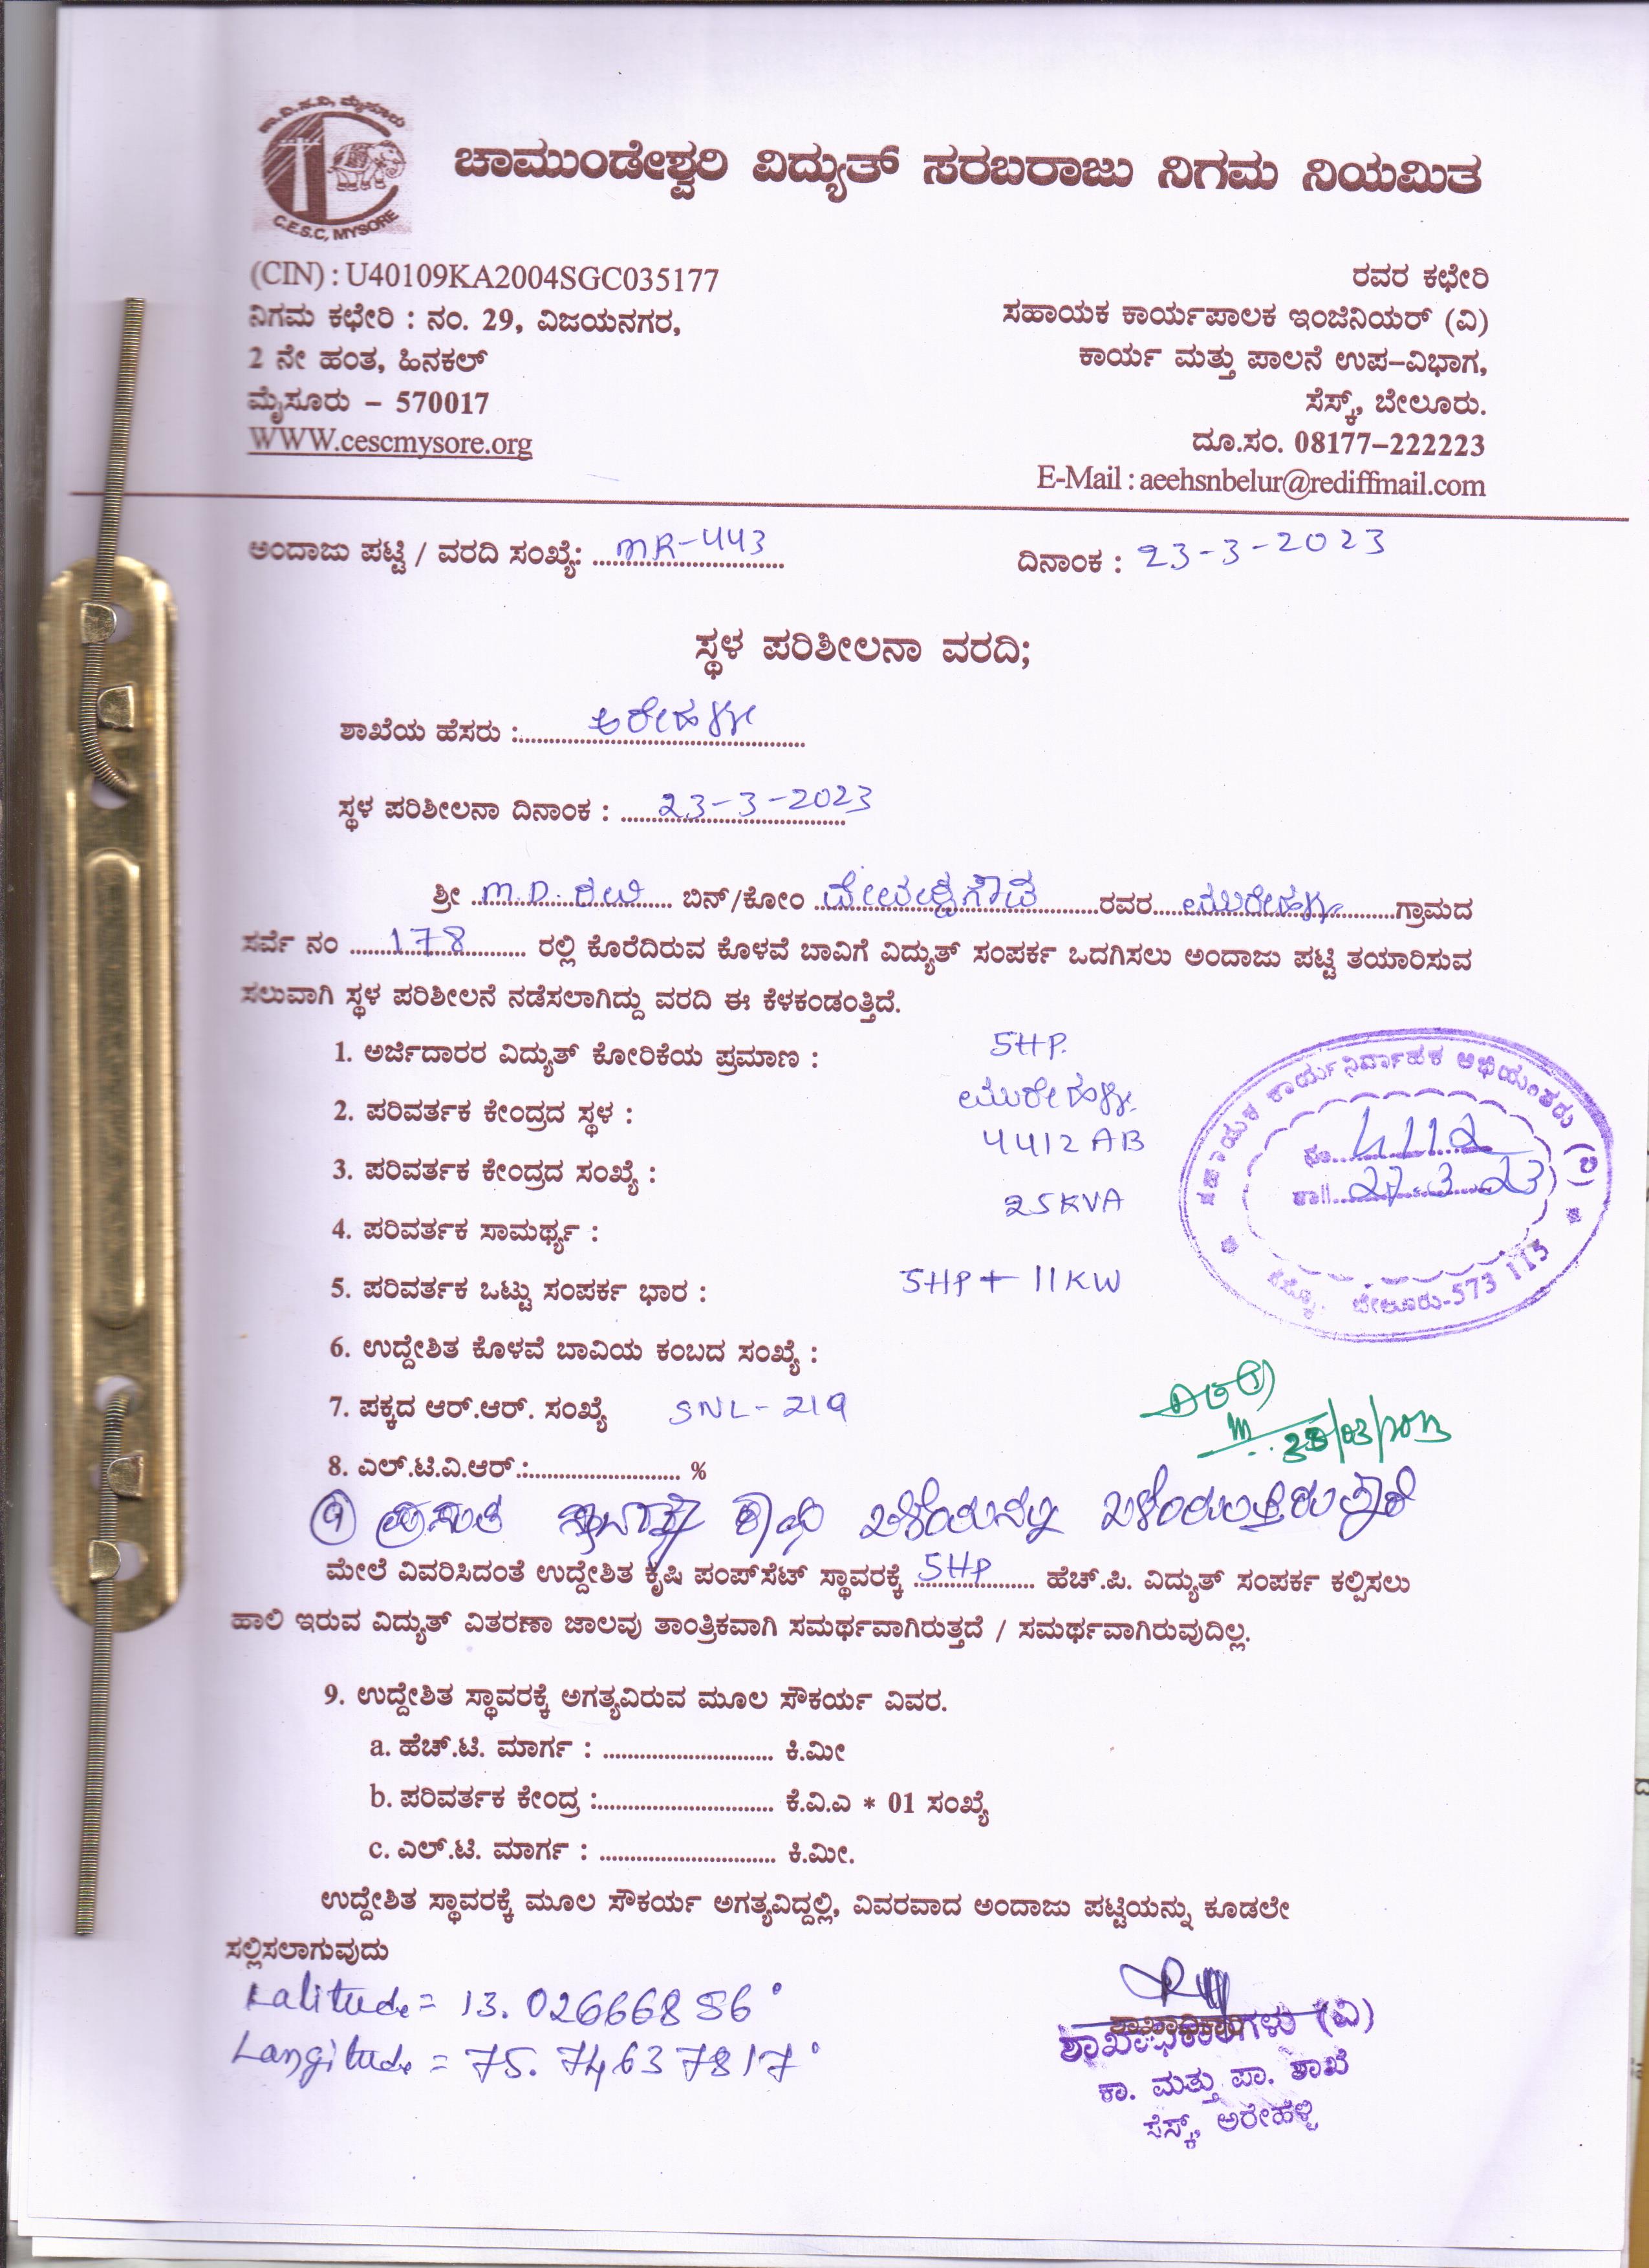 ಚಾ.ವಿ.ಸ.ನಿ, ಮೈಸೂರು
C.E.S.C, MYSORE
ಚಾಮುಂಡೇಶ್ವರಿ ವಿದ್ಯುತ್ ಸರಬರಾಜು ನಿಗಮ ನಿಯಮಿತ
(CIN) : U40109KA2004SGC035177
ನಿಗಮ ಕಛೇರಿ : ನಂ. 29, ವಿಜಯನಗರ,
2 ನೇ ಹಂತ, ಹಿನಕಲ್
ಮೈಸೂರು – 570017
WWW.cescmysore.org
ರವರ ಕಛೇರಿ
ಸಹಾಯಕ ಕಾರ್ಯಪಾಲಕ ಇಂಜಿನಿಯರ್ (ವಿ)
ಕಾರ್ಯ ಮತ್ತು ಪಾಲನೆ ಉಪ–ವಿಭಾಗ,
ಸೆಸ್ಕ್, ಬೇಲೂರು.
ದೂ.ಸಂ. 08177–222223
E-Mail : aeehsnbelur@rediffmail.com
ಅಂದಾಜು ಪಟ್ಟಿ / ವರದಿ ಸಂಖ್ಯೆ: MR-443 ದಿನಾಂಕ : 23-3-2023
ಸ್ಥಳ ಪರಿಶೀಲನಾ ವರದಿ;
ಶಾಖೆಯ ಹೆಸರು : ಅರೇಹಳ್ಳಿ
ಸ್ಥಳ ಪರಿಶೀಲನಾ ದಿನಾಂಕ : 23-3-2023
ಶ್ರೀ M.D. ರವಿ ಬಿನ್/ಕೋಂ ರವರ ಗ್ರಾಮದ
ಸರ್ವೆ ನಂ 178 ರಲ್ಲಿ ಕೊರೆದಿರುವ ಕೊಳವೆ ಬಾವಿಗೆ ವಿದ್ಯುತ್ ಸಂಪರ್ಕ ಒದಗಿಸಲು ಅಂದಾಜು ಪಟ್ಟಿ ತಯಾರಿಸುವ
ಸಲುವಾಗಿ ಸ್ಥಳ ಪರಿಶೀಲನೆ ನಡೆಸಲಾಗಿದ್ದು ವರದಿ ಈ ಕೆಳಕಂಡಂತ್ತಿದೆ.
1. ಅರ್ಜಿದಾರರ ವಿದ್ಯುತ್ ಕೋರಿಕೆಯ ಪ್ರಮಾಣ : 5HP.
2. ಪರಿವರ್ತಕ ಕೇಂದ್ರದ ಸ್ಥಳ :
3. ಪರಿವರ್ತಕ ಕೇಂದ್ರದ ಸಂಖ್ಯೆ : 4412 AB
4. ಪರಿವರ್ತಕ ಸಾಮರ್ಥ್ಯ : 25KVA
5. ಪರಿವರ್ತಕ ಒಟ್ಟು ಸಂಪರ್ಕ ಭಾರ : 5HP + 11KW
6. ಉದ್ದೇಶಿತ ಕೊಳವೆ ಬಾವಿಯ ಕಂಬದ ಸಂಖ್ಯೆ :
7. ಪಕ್ಕದ ಆರ್.ಆರ್. ಸಂಖ್ಯೆ SNL-219
8. ಎಲ್.ಟಿ.ವಿ.ಆರ್.: %
ಸಹಾಯಕ ಕಾರ್ಯನಿರ್ವಾಹಕ ಅಭಿಯಂತರು (ವಿ)
ಸಂ. 4112
ದಿನಾಂಕ 27.3.23
ಬೇಲೂರು-573 115
9
ಮೇಲೆ ವಿವರಿಸಿದಂತೆ ಉದ್ದೇಶಿತ ಕೃಷಿ ಪಂಪ್‌ಸೆಟ್ ಸ್ಥಾವರಕ್ಕೆ 5HP ಹೆಚ್.ಪಿ. ವಿದ್ಯುತ್ ಸಂಪರ್ಕ ಕಲ್ಪಿಸಲು
ಹಾಲಿ ಇರುವ ವಿದ್ಯುತ್ ವಿತರಣಾ ಜಾಲವು ತಾಂತ್ರಿಕವಾಗಿ ಸಮರ್ಥವಾಗಿರುತ್ತದೆ / ಸಮರ್ಥವಾಗಿರುವುದಿಲ್ಲ.
9. ಉದ್ದೇಶಿತ ಸ್ಥಾವರಕ್ಕೆ ಅಗತ್ಯವಿರುವ ಮೂಲ ಸೌಕರ್ಯ ವಿವರ.
a. ಹೆಚ್.ಟಿ. ಮಾರ್ಗ : ಕಿ.ಮೀ
b. ಪರಿವರ್ತಕ ಕೇಂದ್ರ : ಕೆ.ವಿ.ಎ * 01 ಸಂಖ್ಯೆ
c. ಎಲ್.ಟಿ. ಮಾರ್ಗ : ಕಿ.ಮೀ.
ಉದ್ದೇಶಿತ ಸ್ಥಾವರಕ್ಕೆ ಮೂಲ ಸೌಕರ್ಯ ಅಗತ್ಯವಿದ್ದಲ್ಲಿ, ವಿವರವಾದ ಅಂದಾಜು ಪಟ್ಟಿಯನ್ನು ಕೂಡಲೇ
ಸಲ್ಲಿಸಲಾಗುವುದು
Latitude = 13.026668 56°
Langitude = 75.74637817°
ಶಾಖಾಧಿಕಾರಿಗಳು (ವಿ)
ಕಾ. ಮತ್ತು ಪಾ. ಶಾಖೆ
ಸೆಸ್ಕ್, ಅರೇಹಳ್ಳಿ